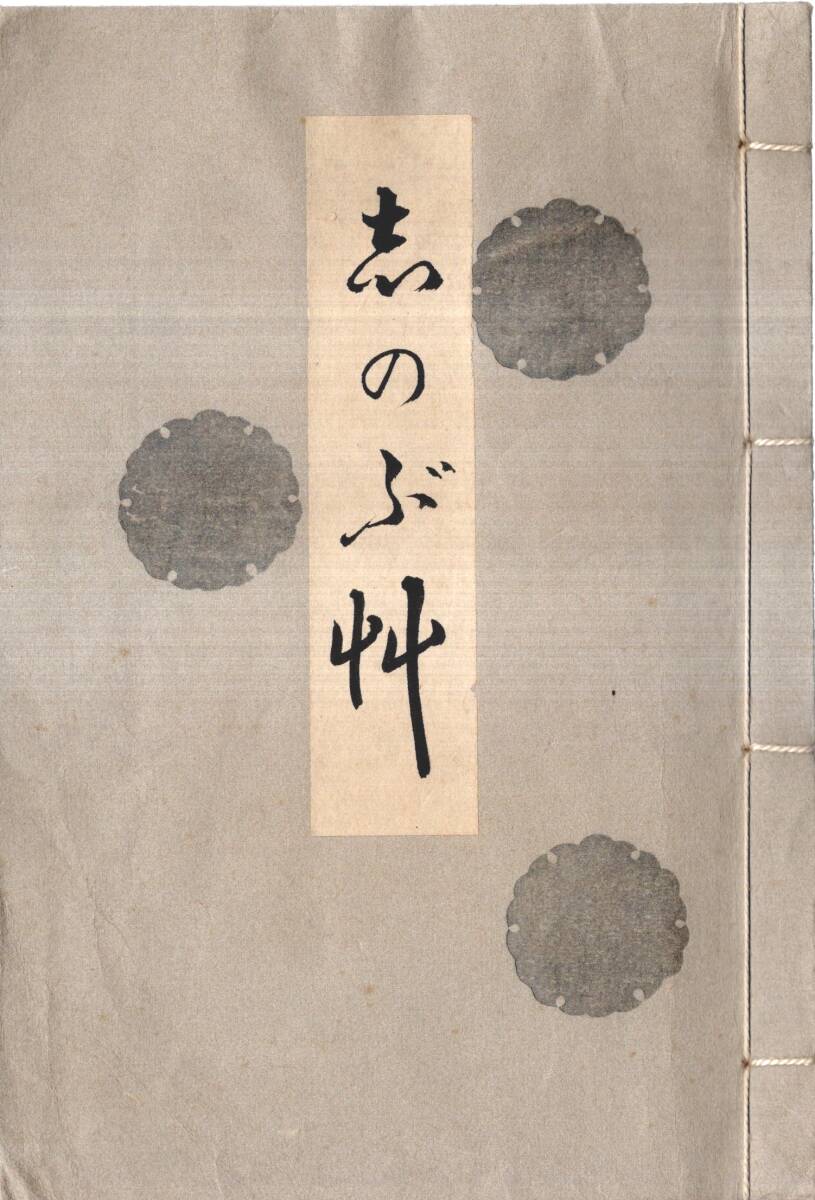 志のぶ艸